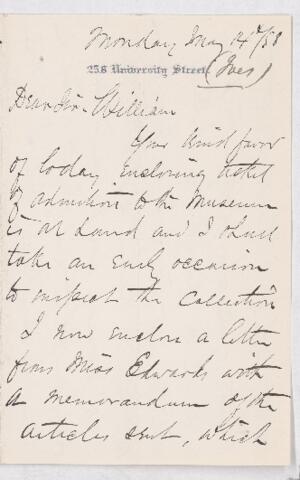 Monday May 14th/88
256 University Street
(Ives)
Dear Sir William
Your kind favor
of today enclosing ticket
of admission to the Museum
is at hand and I shall
take an early occasion
to inspect the collection
I now enclose a letter
from Miss Edwards with
a memorandum of the
articles sent, which